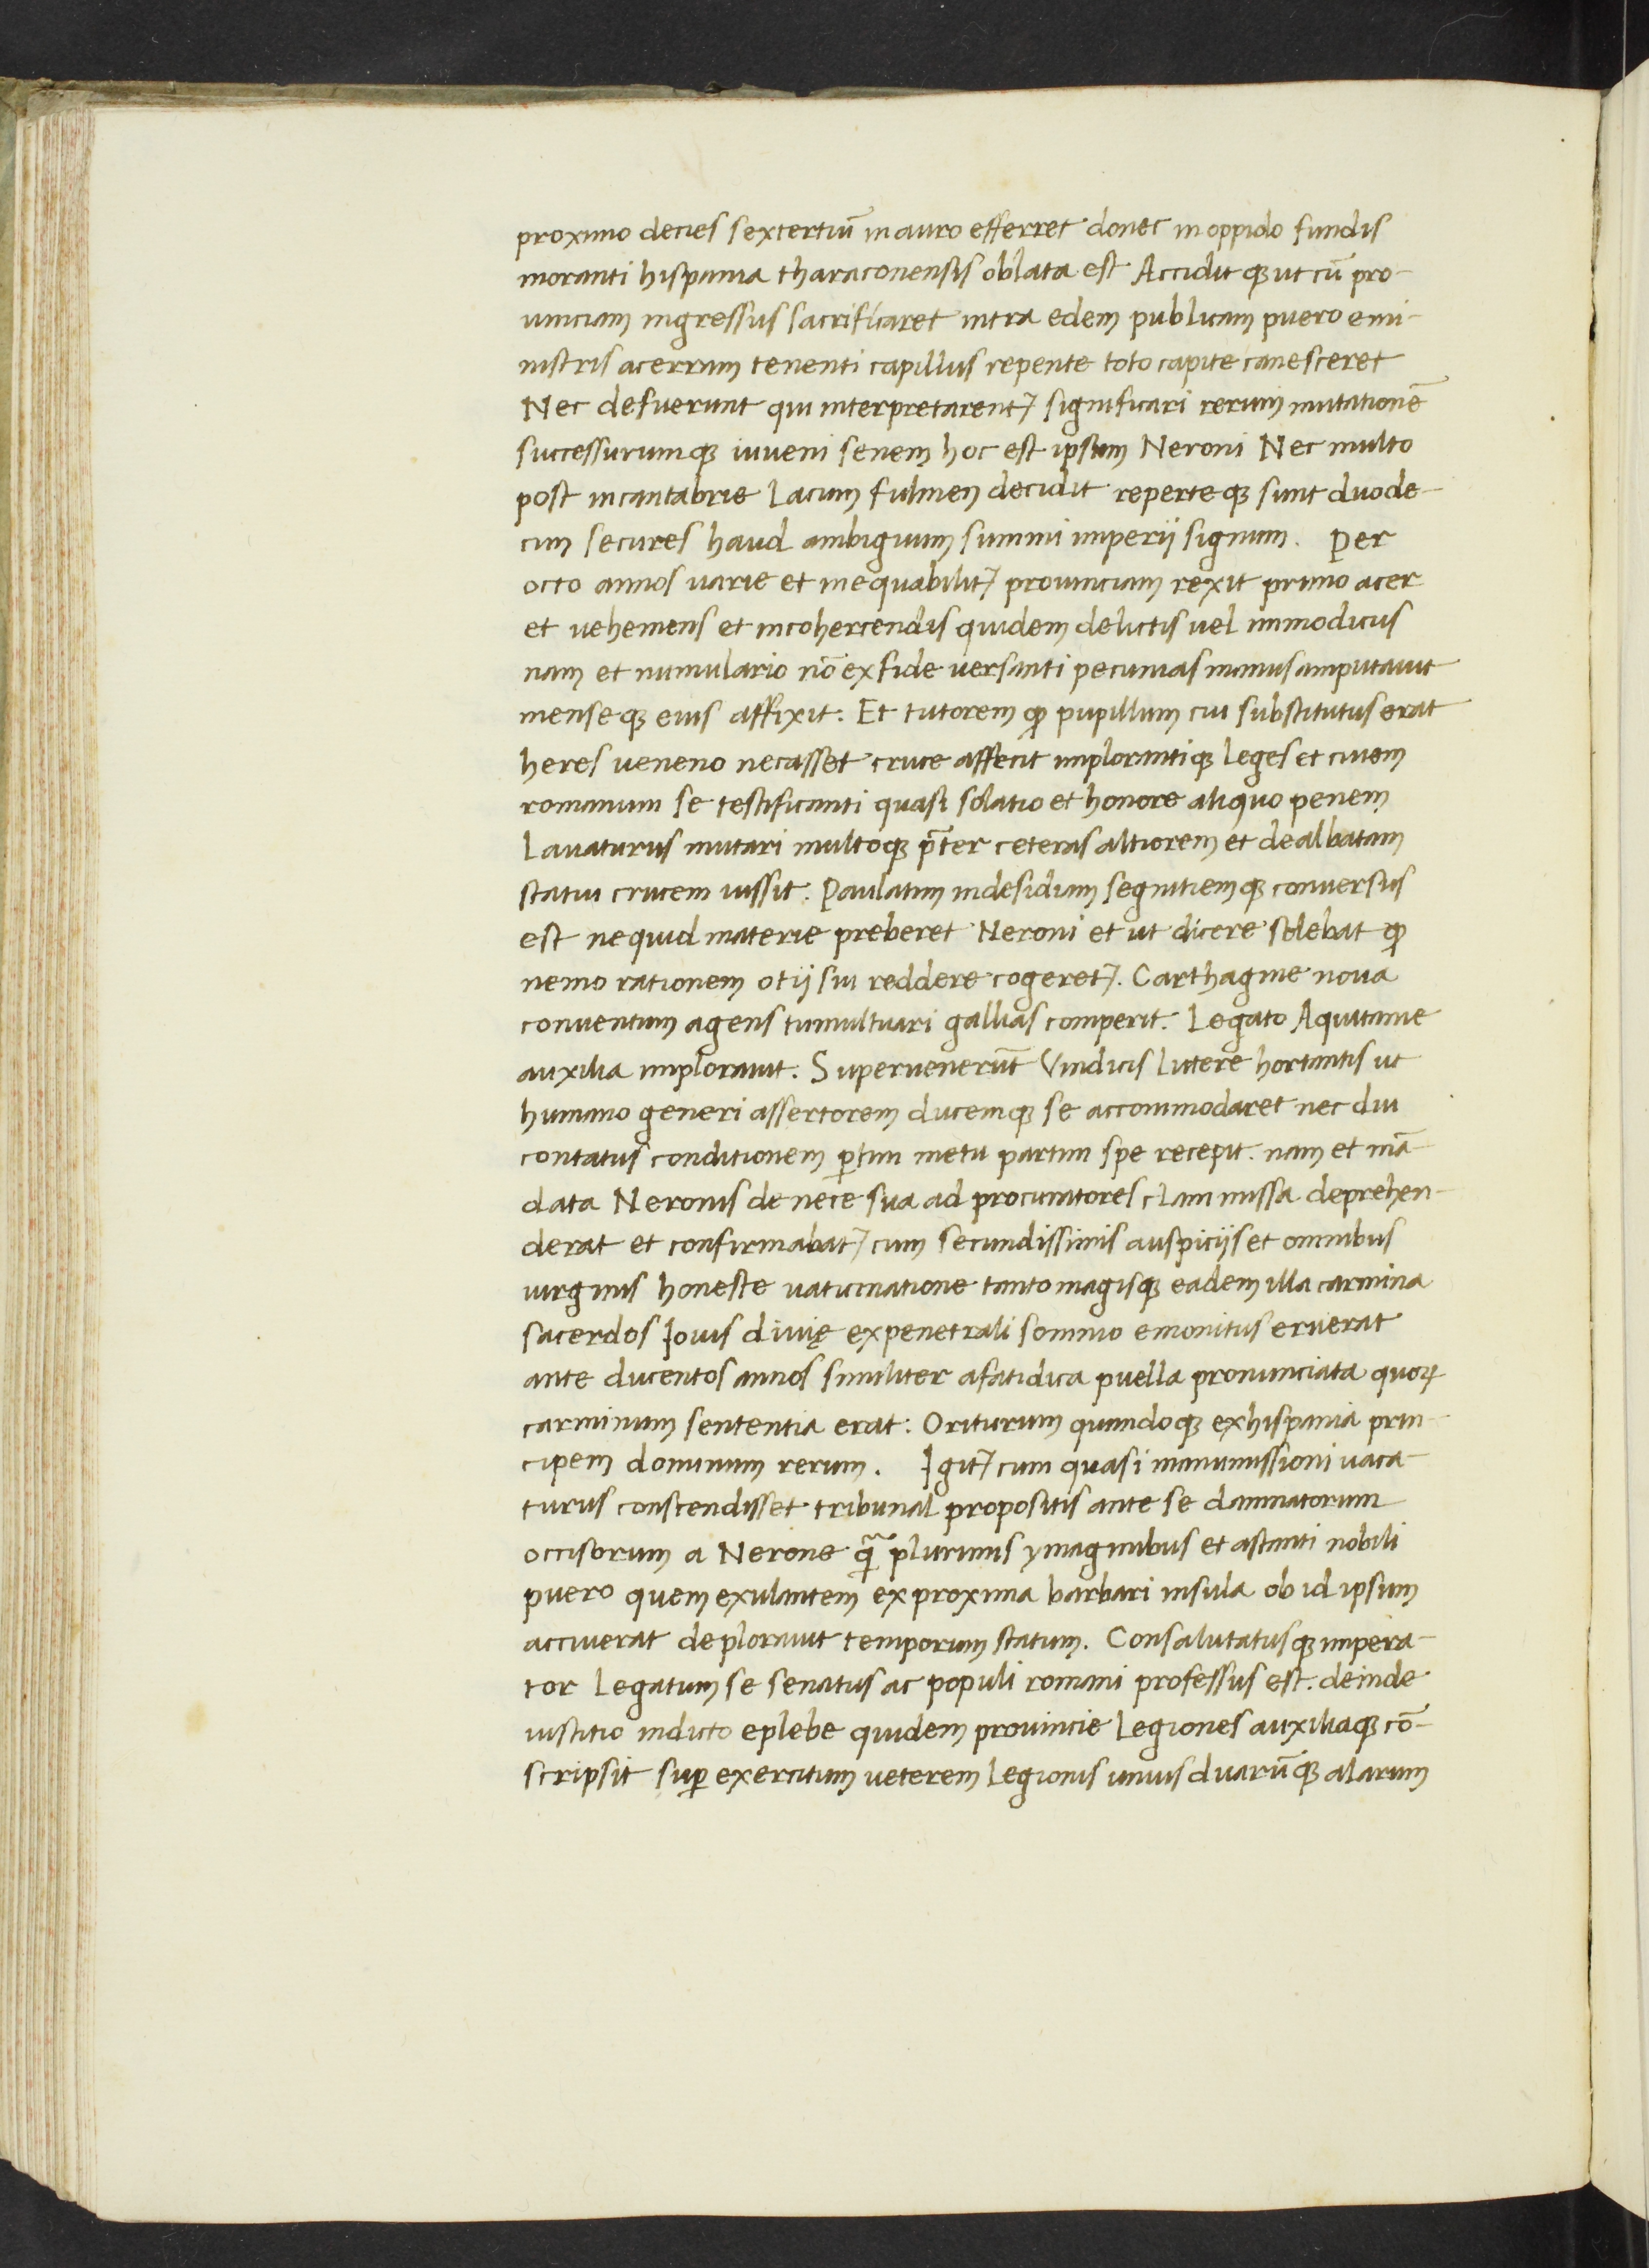 proximo decies sextertiū in auro efferret donec in oppido fundis
moranti hispania tharaconensis oblata est Acciditqꝫ ut cū pro-
uinciam ingressus sacrificaret intra edem publicam puero e mi-
nistris acerram tenenti capillus repente toto capite canesceret
Nec defuerunt qui interpretarent̃ significari rerum mutationē
successurumqꝫ iuueni senem hoc est ipsum Neroni Nec multo
post in cantabrie lacum fulmen decidit reperteqꝫ sunt duode-
cim secures haud ambiguum summi imperii signum. Per
octo annos uarie et inequabilit̃ prouinciam rexit primo acer
et uehemens et in cohercendis quidem delictis uel immodicus
nam et numulario nō ex fide uersanti pecunias manus amputauit
menseqꝫ eius affixit: Et tutorem ꝙ pupillum cui substitutus erat
heres ueneno necasset cruce affecit implorantiqꝫ leges et ciuem
romanum se testificanti quasi solatio et honore aliquo penem
lauaturus mutari multoqꝫ p̄ter ceteras altiorem et dealbatam
statui crucem iussit. Paulatim in desidiam segnitiemqꝫ conuersus
est ne quid materie preberet Neroni et ut dicere solebat ꝙ
nemo rationem otii sui reddere cogeret̃. Carthagine noua
conuentum agens tumultuari gallias comperit. Legato Aquitanie
auxilia implorauit. Superuenerūt Vindicis littere hortantis ut
humano generi assertorem ducemqꝫ se accommodaret nec diu
contatus conditionem ꝑtim metu partim spe recepit. nam et mā-
data Neronis de nece sua ad procuratores clam missa deprehen-
derat et confirmabat̃ cum secundissimis auspiciis et omnibus
uirginis honeste uaticinatione tanto magisqꝫ eadem illa carmina
sacerdos Iouis diuię ex penetrali somnio emonitus eruerat
ante ducentos annos similiter a fatidica puella pronunciata quoꝝ
carminum sententia erat: Oriturum quandoqꝫ ex hispania prin-
cipem dominum rerum. Igit̃ cum quasi manumissioni uaca-
turus conscendisset tribunal propositis ante se damnatorum
occisorum a Nerone q̄ plurimis ymaginibus et astanti nobili
puero quem exulantem ex proxima barbari insula ob id ipsum
acciuerat deplorauit temporum statum. Consalutatusqꝫ impera-
tor legatum se senatus ac populi romani professus est. deinde
iustitio indicto e plebe quidem prouincie legiones auxiliaqꝫ cō-
scripsit suꝑ exercitum ueterem legionis unius duarūqꝫ alarum